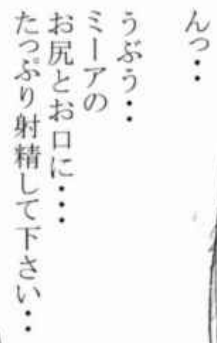 んっ・・
うぶぅ・・
ミーアの
お尻とお口に・・・
たっぷり射精して下さい・・